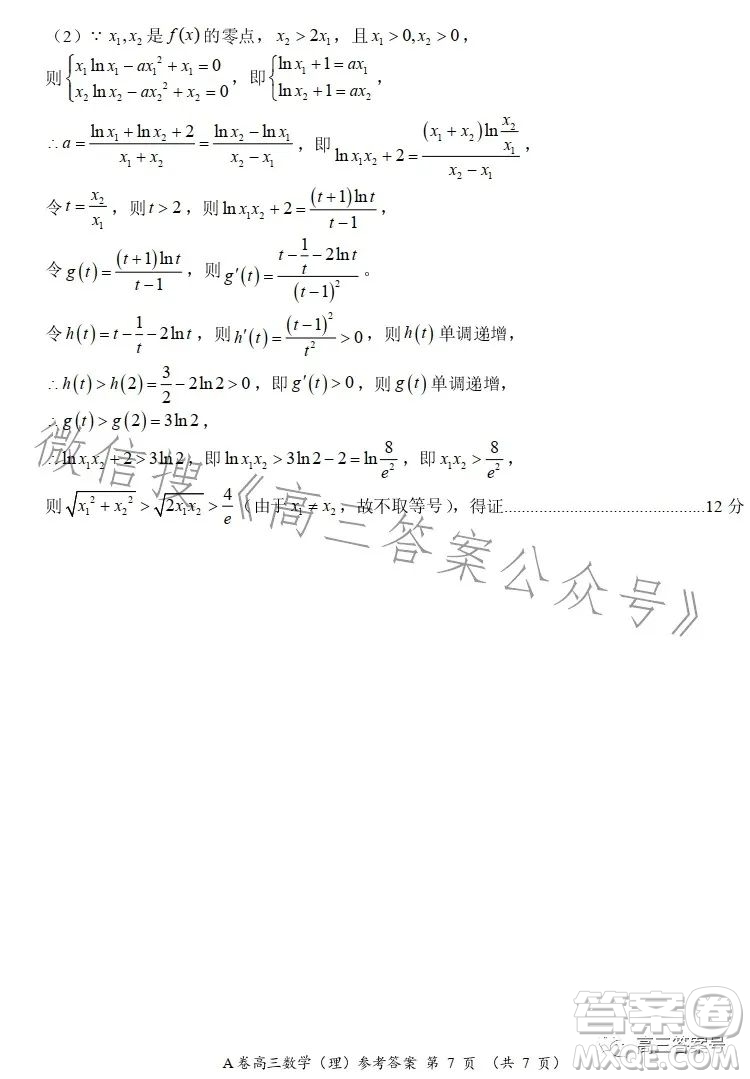 （2）∵ x₁,x₂ 是 f(x) 的零点，x₂ > 2x₁，且 x₁ > 0, x₂ > 0，
则 {x₁lnx₁ − ax₁² + x₁ = 0; x₂lnx₂ − ax₂² + x₂ = 0，即 {lnx₁ + 1 = ax₁; lnx₂ + 1 = ax₂，
∴ a = (lnx₁ + lnx₂ + 2)/(x₁ + x₂) = (lnx₂ − lnx₁)/(x₂ − x₁)，即 lnx₁x₂ + 2 = ((x₁ + x₂)ln(x₂/x₁))/(x₂ − x₁)，
令 t = x₂/x₁，则 t > 2，则 lnx₁x₂ + 2 = ((t+1)lnt)/(t−1)，
令 g(t) = ((t+1)lnt)/(t−1)，则 g′(t) = (t − 1/t − 2lnt)/(t−1)²。
令 h(t) = t − 1/t − 2lnt，则 h′(t) = (t−1)²/t² > 0，则 h(t) 单调递增，
∴ h(t) > h(2) = 3/2 − 2ln2 > 0，即 g′(t) > 0，则 g(t) 单调递增，
∴ g(t) > g(2) = 3ln2，
∴ lnx₁x₂ + 2 > 3ln2，即 lnx₁x₂ > 3ln2 − 2 = ln(8/e²)，即 x₁x₂ > 8/e²，
则 √(x₁² + x₂²) > √(2x₁x₂) > 4/e（由于 x₁ ≠ x₂，故不取等号），得证........................................12 分
微信搜《高三答案公众号》
高三答案号
答案圈
MXQE.COM
A 卷高三数学（理）参考答案 第 7 页 （共 7 页）